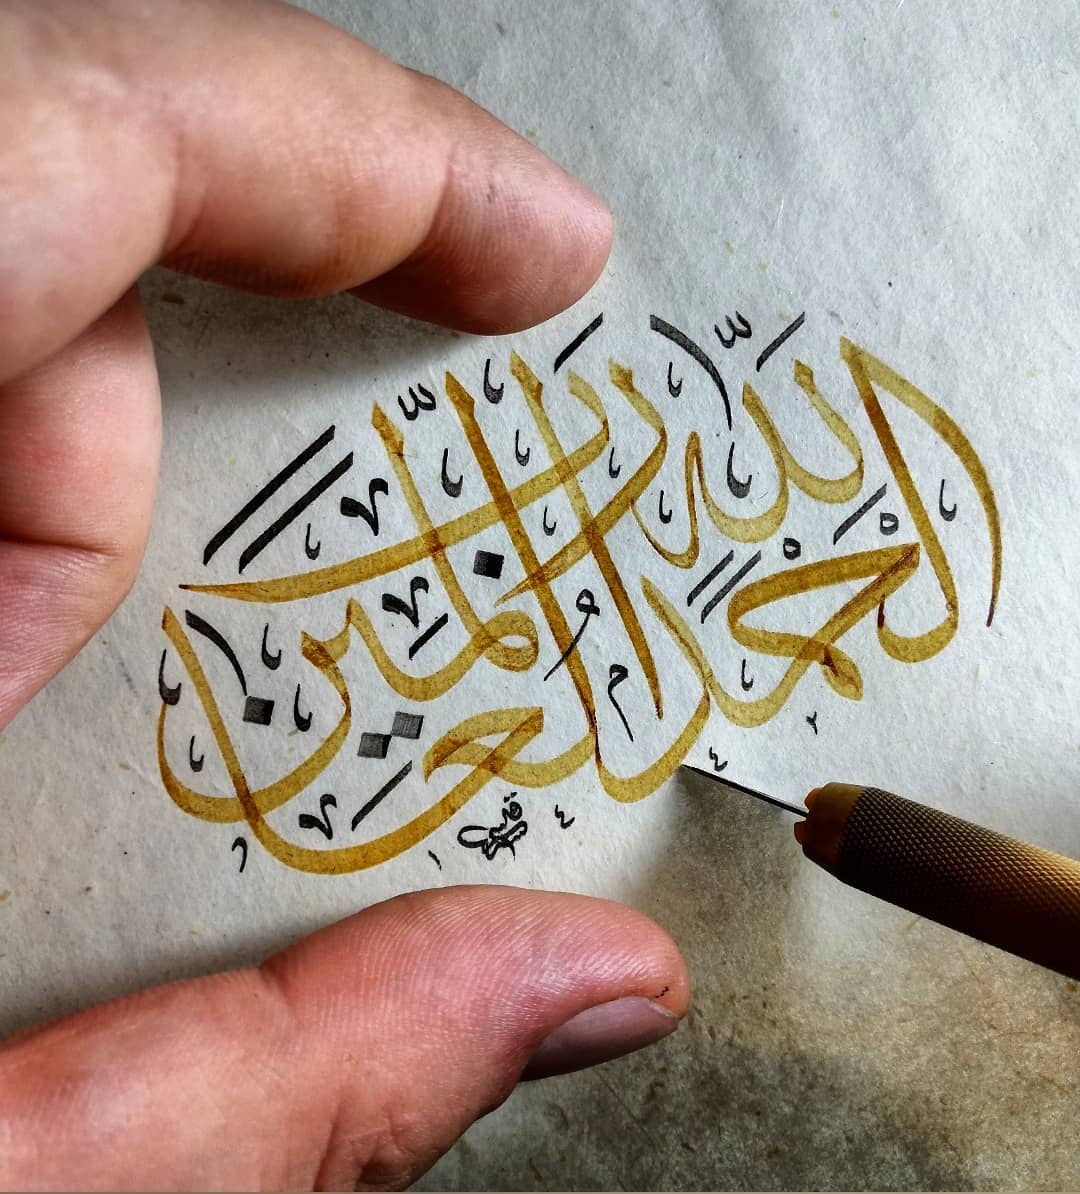 الحمد لله رب العالمين
١٤٤٢